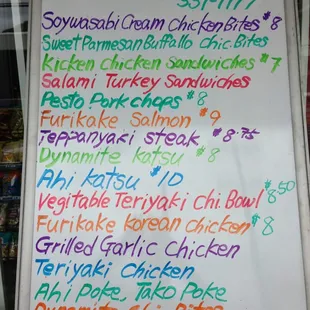 Soywasabi Cream Chicken Bites $8
Sweet Parmesan Buffallo chic. Bites
Kicken chicken Sandwiches $7
Salami Turkey Sandwiches
Pesto Pork chops $8
Furikake Salmon $9
Teppanyaki steak $8.75
Dynamite katsu $8
Ahi katsu $10
Vegitable Teriyaki Chi. Bowl $8.50
Furikake Korean chicken $8
Grilled Garlic Chicken
Teriyaki Chicken
Ahi Poke, Tako Poke